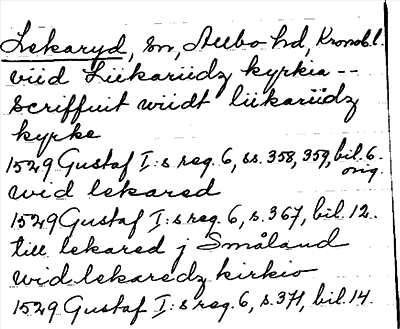 Lekaryd, sn, Allbo hd, Kronob.l.
viid Liikariidz kyrkia --
scriffuit wiidt liikariidz
kyrke
1529 Gustaf I:s reg. 6, ss. 358, 359, bil. 6.
orig.
wid lekared
1529 Gustaf I:s reg. 6, s. 367, bil. 12.
till lekared j Småland
wid lekaredz kirkio
1529 Gustaf I:s reg. 6, s. 371, bil. 14.